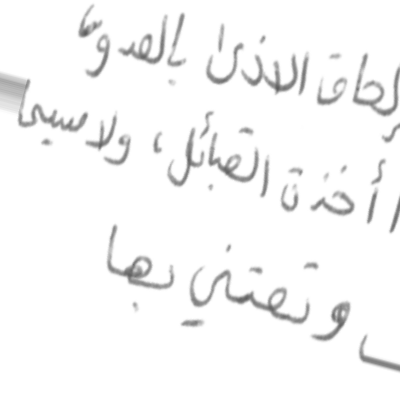 إلحاق الاذى بالعدو"
أخذة القبائل، ولا سيما
وتعتني بها